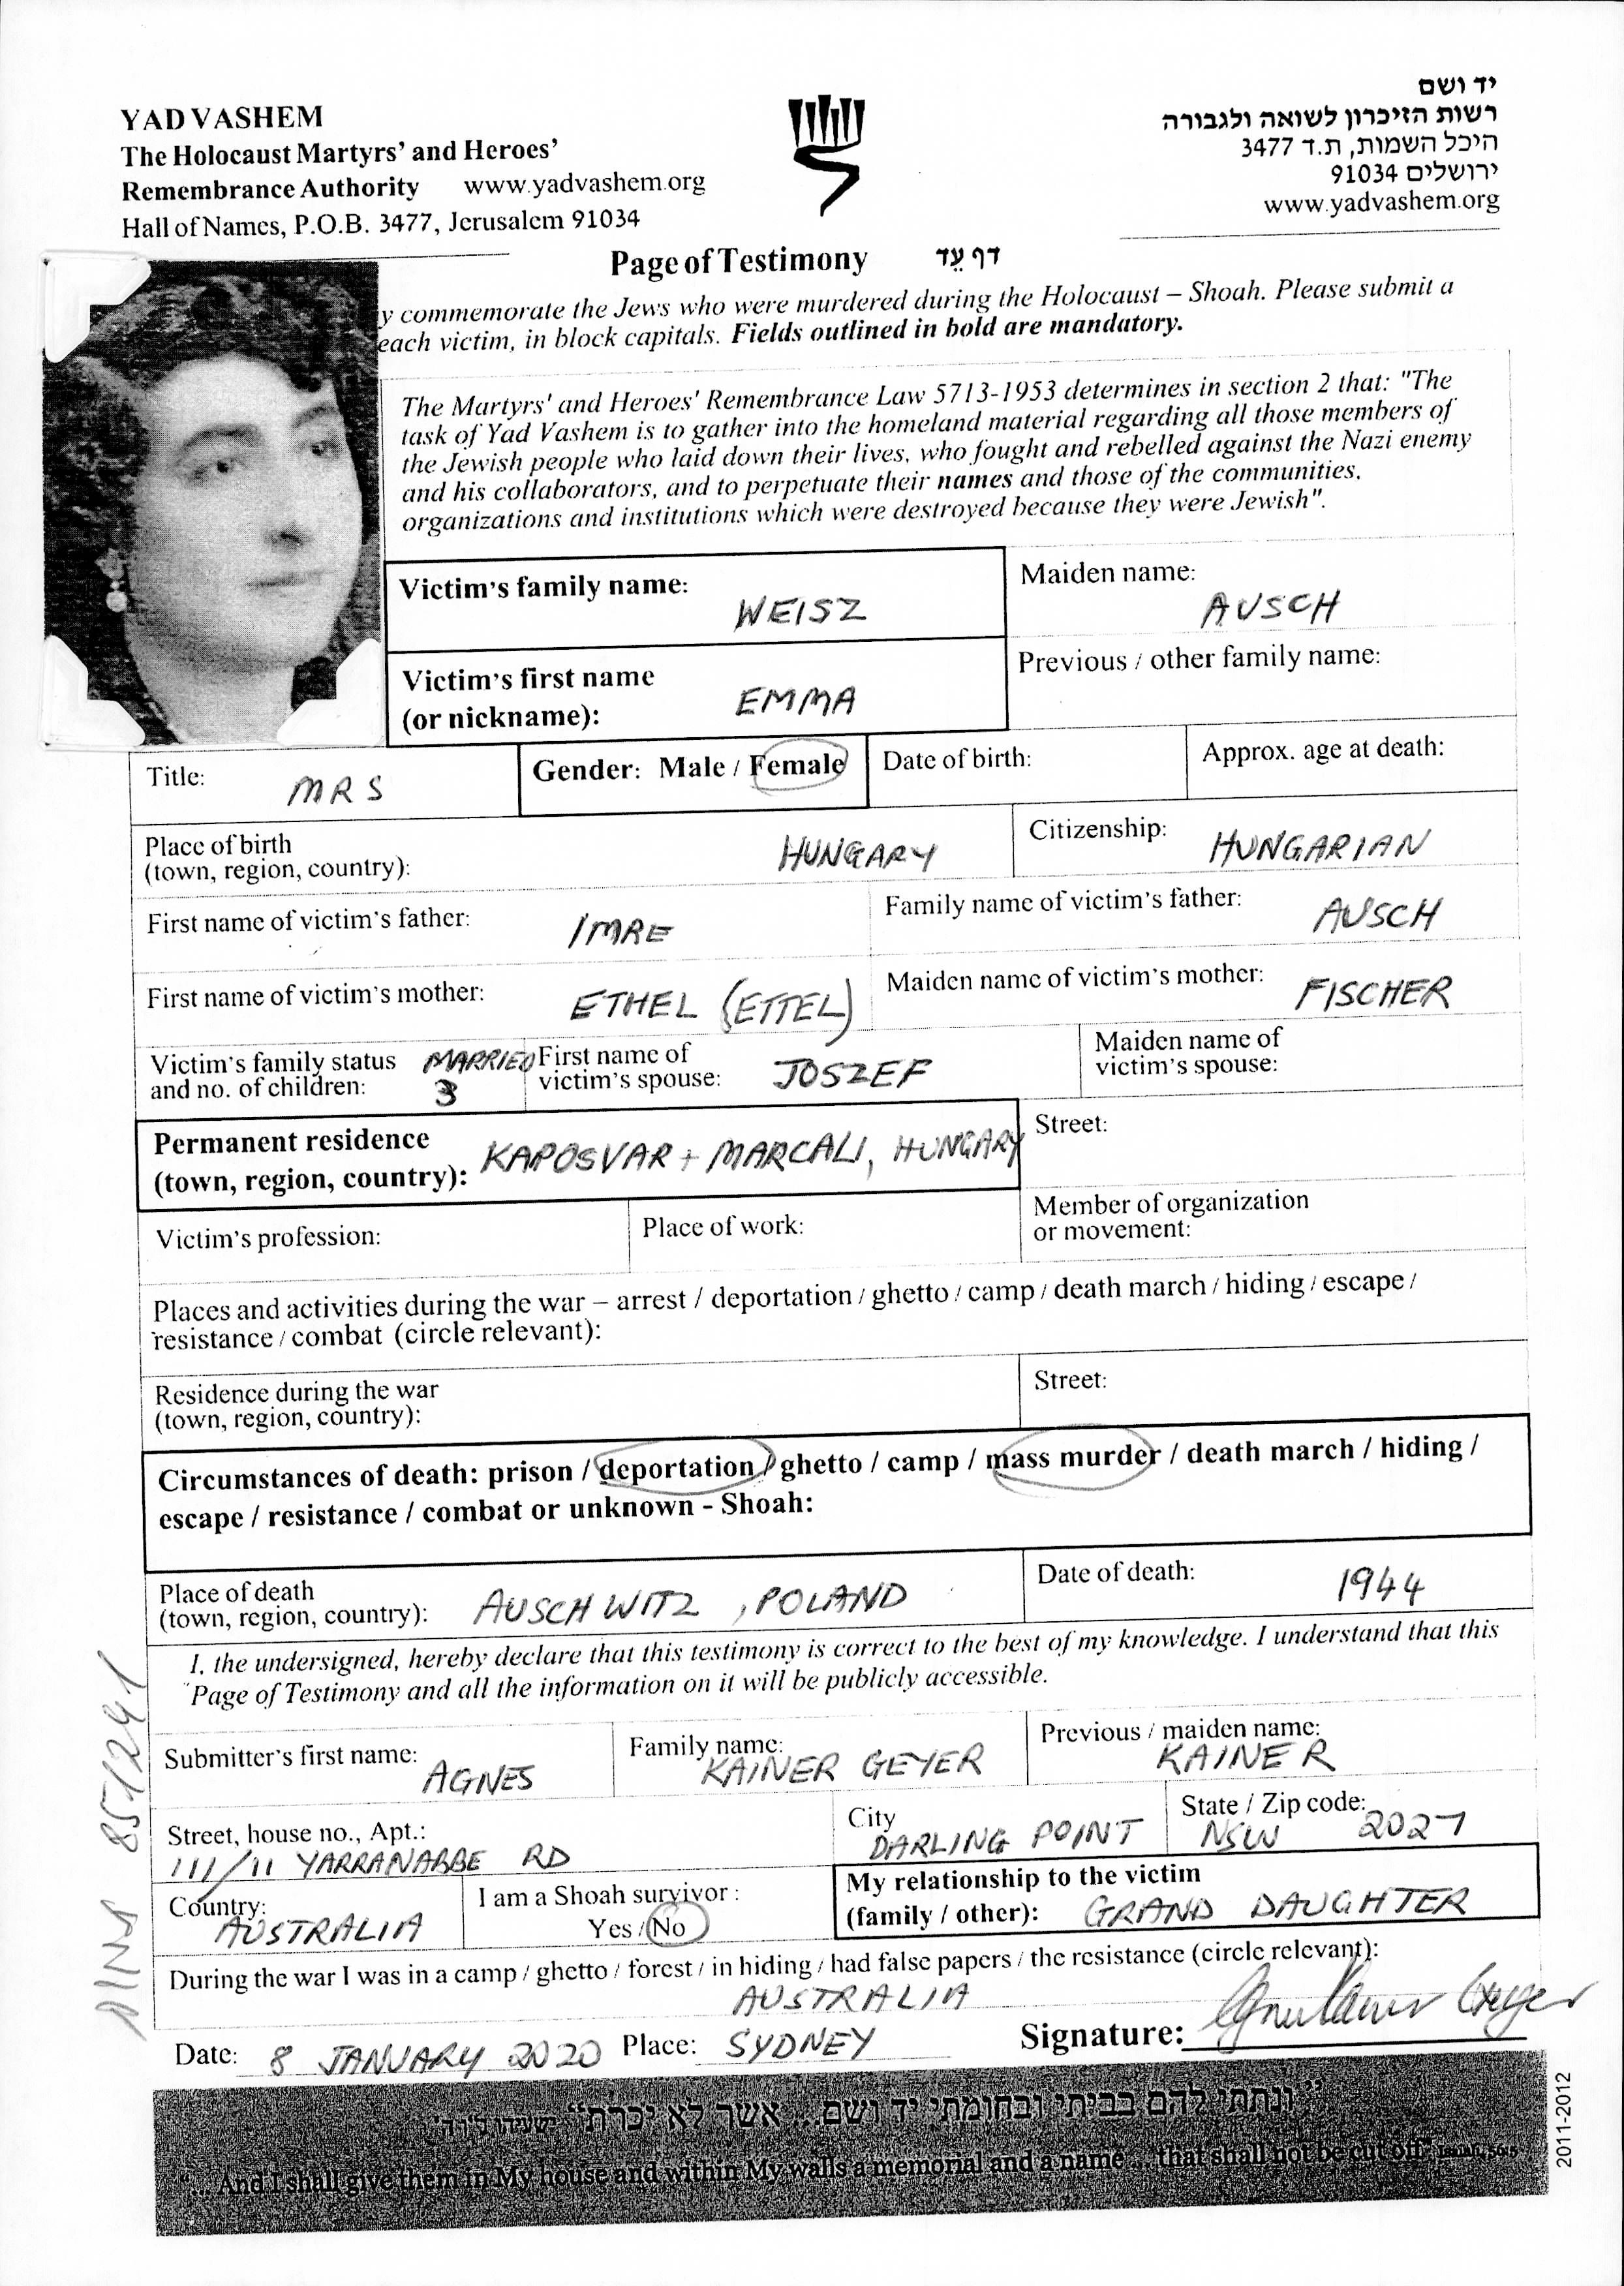 YAD VASHEM
The Holocaust Martyrs' and Heroes'
Remembrance Authority www.yadvashem.org
Hall of Names, P.O.B. 3477, Jerusalem 91034
יד ושם
רשות הזיכרון לשואה ולגבורה
היכל השמות, ת.ד 3477
ירושלים 91034
www.yadvashem.org
Page of Testimony דף עֵד
y commemorate the Jews who were murdered during the Holocaust – Shoah. Please submit a
each victim, in block capitals. Fields outlined in bold are mandatory.
The Martyrs' and Heroes' Remembrance Law 5713-1953 determines in section 2 that: "The
task of Yad Vashem is to gather into the homeland material regarding all those members of
the Jewish people who laid down their lives, who fought and rebelled against the Nazi enemy
and his collaborators, and to perpetuate their names and those of the communities,
organizations and institutions which were destroyed because they were Jewish".
Victim's family name: WEISZ
Maiden name: AUSCH
Victim's first name
(or nickname): EMMA
Previous / other family name:
Title: MRS
Gender: Male / Female
Date of birth:
Approx. age at death:
Place of birth
(town, region, country): HUNGARY
Citizenship: HUNGARIAN
First name of victim's father: IMRE
Family name of victim's father: AUSCH
First name of victim's mother: ETHEL (ETTEL)
Maiden name of victim's mother: FISCHER
Victim's family status MARRIED
and no. of children: 3
First name of
victim's spouse: JOSZEF
Maiden name of
victim's spouse:
Permanent residence
(town, region, country): KAPOSVAR + MARCALI, HUNGARY
Street:
Victim's profession:
Place of work:
Member of organization
or movement:
Places and activities during the war – arrest / deportation / ghetto / camp / death march / hiding / escape /
resistance / combat (circle relevant):
Residence during the war
(town, region, country):
Street:
Circumstances of death: prison / deportation / ghetto / camp / mass murder / death march / hiding /
escape / resistance / combat or unknown - Shoah:
Place of death
(town, region, country): AUSCHWITZ, POLAND
Date of death: 1944
I, the undersigned, hereby declare that this testimony is correct to the best of my knowledge. I understand that this
Page of Testimony and all the information on it will be publicly accessible.
Submitter's first name: AGNES
Family name: KAINER GEYER
Previous / maiden name: KAINER
Street, house no., Apt.:
111/11 YARRANABBE RD
City
DARLING POINT
State / Zip code:
NSW 2027
Country:
AUSTRALIA
I am a Shoah survivor :
Yes / No
My relationship to the victim
(family / other): GRAND DAUGHTER
During the war I was in a camp / ghetto / forest / in hiding / had false papers / the resistance (circle relevant):
AUSTRALIA
Date: 8 JANUARY 2020 Place: SYDNEY Signature:
"ונתתי להם בביתי ובחומתי יד ושם... אשר לא יכרת"
"... And I shall give them in My house and within My walls a memorial and a name ... that shall not be cut off." Isaiah, 56:5
2011-2012
851241